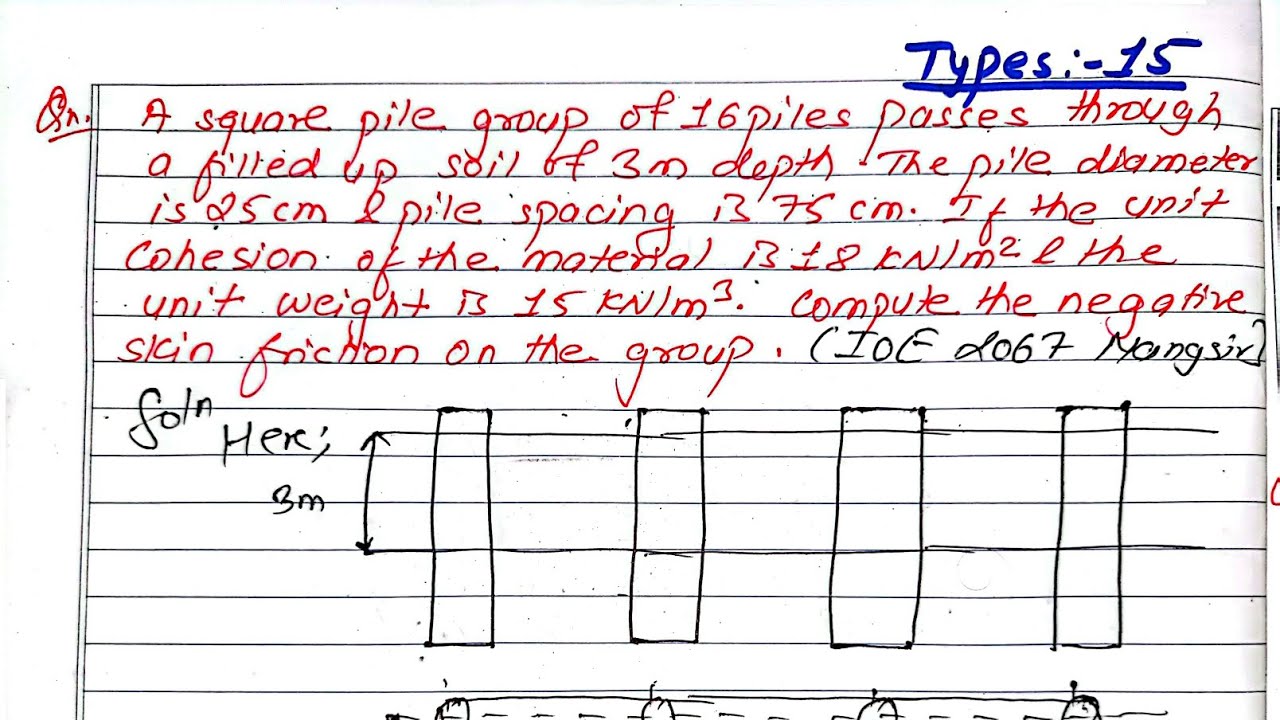 Types:-15
Qn. A square pile group of 16 piles passes through
a filled up soil of 3m depth. The pile diameter
is 25cm & pile spacing is 75 cm. If the unit
cohesion of the material is 18 KN/m² & the
unit weight is 15 KN/m³. compute the negative
skin friction on the group. (IOE 2067 Mangsir)
Soln
Here;
3m